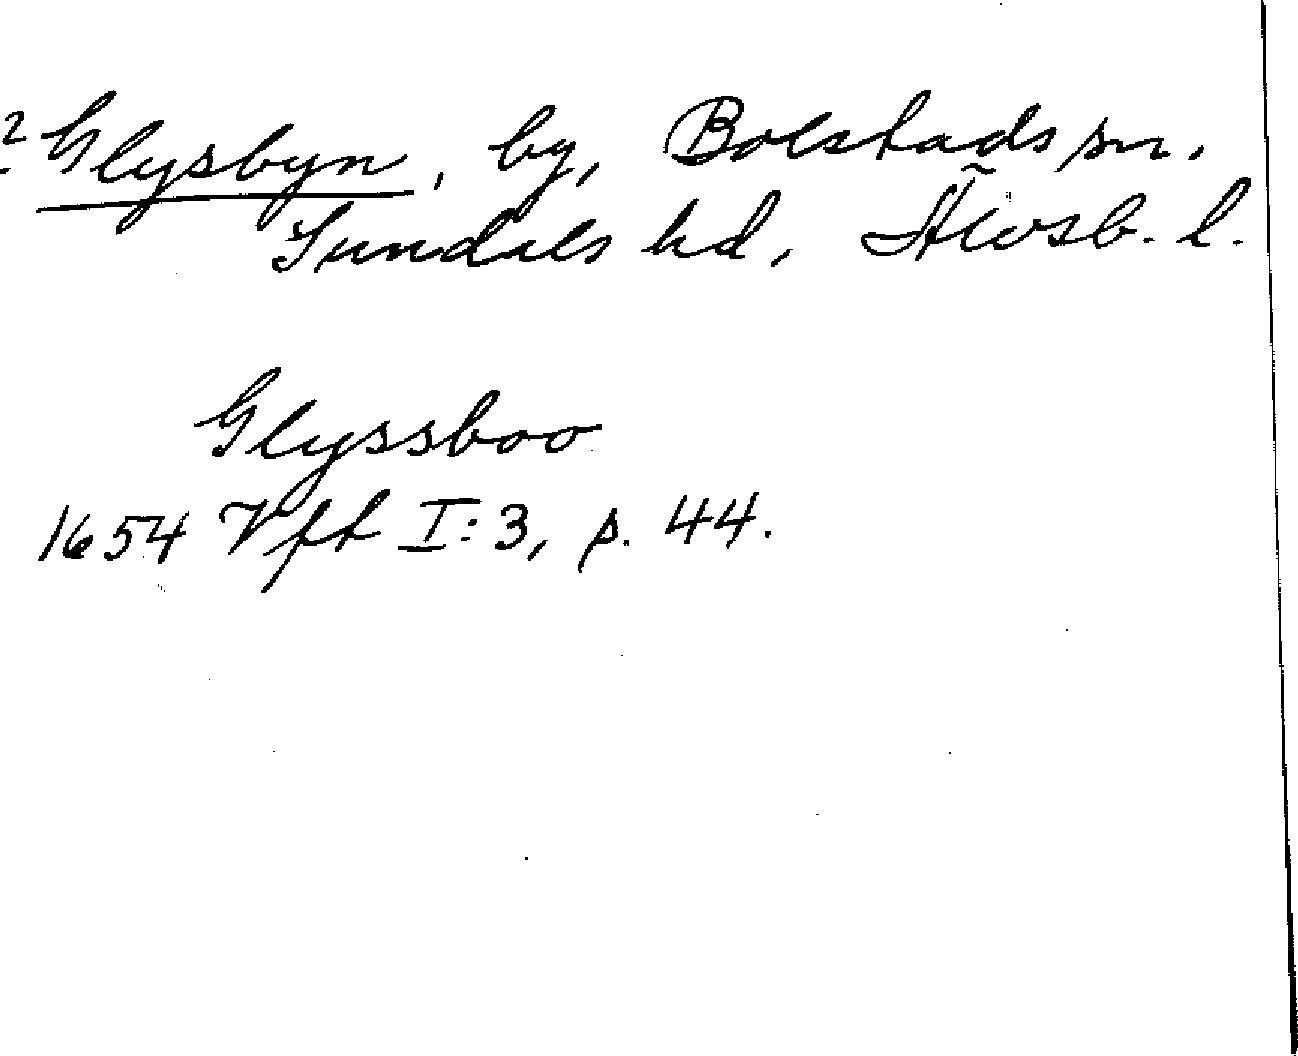 2 Glysbyn, by, Bolstads sn.
Sundals hd, Älvsb. l.
Glyssboo
1654 Vft I:3, p. 44.